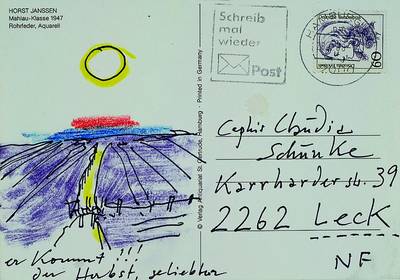 HORST JANSSEN
Mahlau-Klasse 1947
Rohrfeder, Aquarell
er kommt !!!
der Herbst, geliebter
© Verlag Antiquariat St. Gertrude, Hamburg · Printed in Germany
Schreib
mal
wieder
Post
60
Claudia
Schünke
Karrharder str. 39
2262 Leck
NF